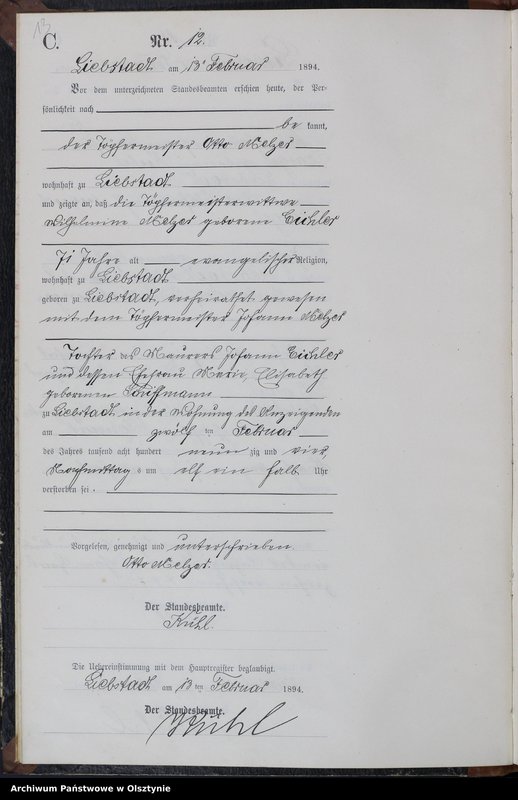 13
C. Nr. 12.
Liebstadt am 13t Februar 1894.
Vor dem unterzeichneten Standesbeamten erschien heute, der Per-
sönlichkeit nach
be kannt,
der Töpfermeister Otto Melzer
wohnhaft zu Liebstadt
und zeigte an, daß die Töpfermeisterwittwe
Wilhelmine Melzer geborene Eichler
71 Jahre alt evangelischer Religion,
wohnhaft zu Liebstadt
geboren zu Liebstadt, verheirathet gewesen
mit dem Töpfermeister Johann Melzer
Tochter des Maurers Johann Eichler
und dessen Ehefrau Marie, Elisabeth
geborenen
zu Liebstadt in der Wohnung des Anzeigenden
am zwölf ten Februar
des Jahres tausend acht hundert neun zig und vier
Nachmittag s um elf ein halb Uhr
verstorben sei.
Vorgelesen, genehmigt und unterschrieben
Otto Melzer.
Der Standesbeamte.
Kühl.
Die Uebereinstimmung mit dem Hauptregister beglaubigt.
Liebstadt am 13 ten Februar 1894.
Der Standesbeamte.
Kühl
Archiwum Państwowe w Olsztynie